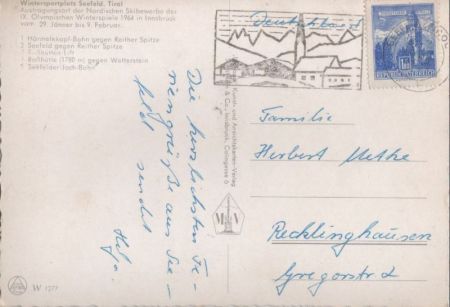 Wintersportplatz Seefeld, Tirol
Austragungsort der Nordischen Skibewerbe der
IX. Olympischen Winterspiele 1964 in Innsbruck
vom 29. Jänner bis 9. Februar.
1 Härmelekopf-Bahn gegen Reither Spitze
2 Seefeld gegen Reither Spitze
4 Roßhütte (1780 m) gegen Wetterstein
5 Seefelder-Joch-Bahn
Deutschland
REPUBLIK ÖSTERREICH
Die herzlichsten Fe-
riengrüße aus See-
feld sendet
Helga.
Kunst- und Ansichtskarten-Verlag
& Co., Innsbruck,
M V
Familie
Herbert
Recklinghausen
W 1277